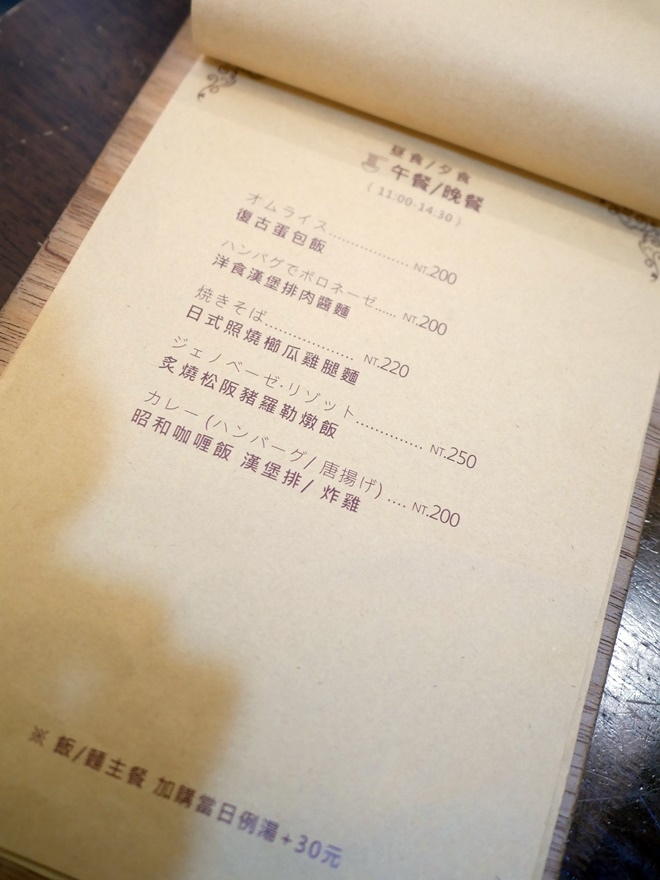 昼食/夕食
午餐/晚餐
( 11:00-14:30 )
オムライス.................. NT.200
復古蛋包飯
ハンバグでボロネーゼ...... NT.200
洋食漢堡排肉醬麵
焼きそば..................... NT.220
日式照燒櫛瓜雞腿麵
ジェノベーゼ·リゾット............... NT.250
炙燒松阪豬羅勒燉飯
カレー(ハンバーグ/唐揚げ) .... NT.200
昭和咖喱飯 漢堡排/ 炸雞
※ 飯/麵主餐 加購當日例湯+30元